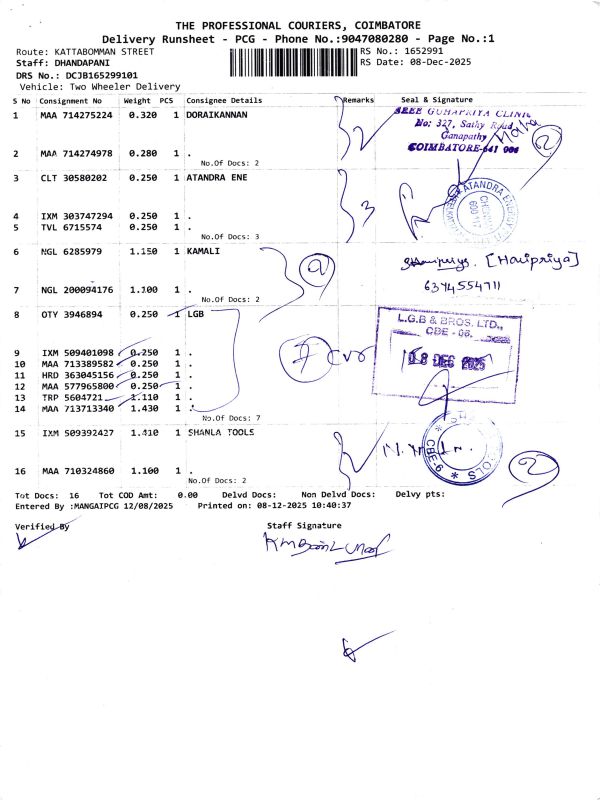 THE PROFESSIONAL COURIERS, COIMBATORE
Delivery Runsheet - PCG - Phone No.:9047080280 - Page No.:1
Route: KATTABOMMAN STREET RS No.: 1652991
Staff: DHANDAPANI RS Date: 08-Dec-2025
DRS No.: DCJB165299101
Vehicle: Two Wheeler Delivery
S No Consignment No Weight PCS Consignee Details Remarks Seal & Signature
1 MAA 714275224 0.320 1 DORAIKANNAN
SREE GUHAPRIYA CLINIC
No: 327, Sathy Road,
Ganapathy
COIMBATORE-641 006
2 MAA 714274978 0.280 1 .
No.Of Docs: 2
2
3 CLT 30580202 0.250 1 ATANDRA ENE
3
4 IXM 303747294 0.250 1 .
5 TVL 6715574 0.250 1 .
No.Of Docs: 3
6 NGL 6285979 1.150 1 KAMALI
2
[Haripriya]
6374554711
7 NGL 200094176 1.100 1 .
No.Of Docs: 2
8 OTY 3946894 0.250 1 LGB
L.G.B & BROS. LTD.,
CBE - 06.
08 DEC 2025
7
9 IXM 509401098 0.250 1 .
10 MAA 713389582 0.250 1 .
11 HRD 363045156 0.250 1 .
12 MAA 577965800 0.250 1 .
13 TRP 5604721 1.110 1 .
14 MAA 713713340 1.430 1 .
No.Of Docs: 7
15 IXM 509392427 1.410 1 SHANLA TOOLS
2
16 MAA 710324860 1.100 1 .
No.Of Docs: 2
Tot Docs: 16 Tot COD Amt: 0.00 Delvd Docs: Non Delvd Docs: Delvy pts:
Entered By :MANGAIPCG 12/08/2025 Printed on: 08-12-2025 10:40:37
Verified By Staff Signature